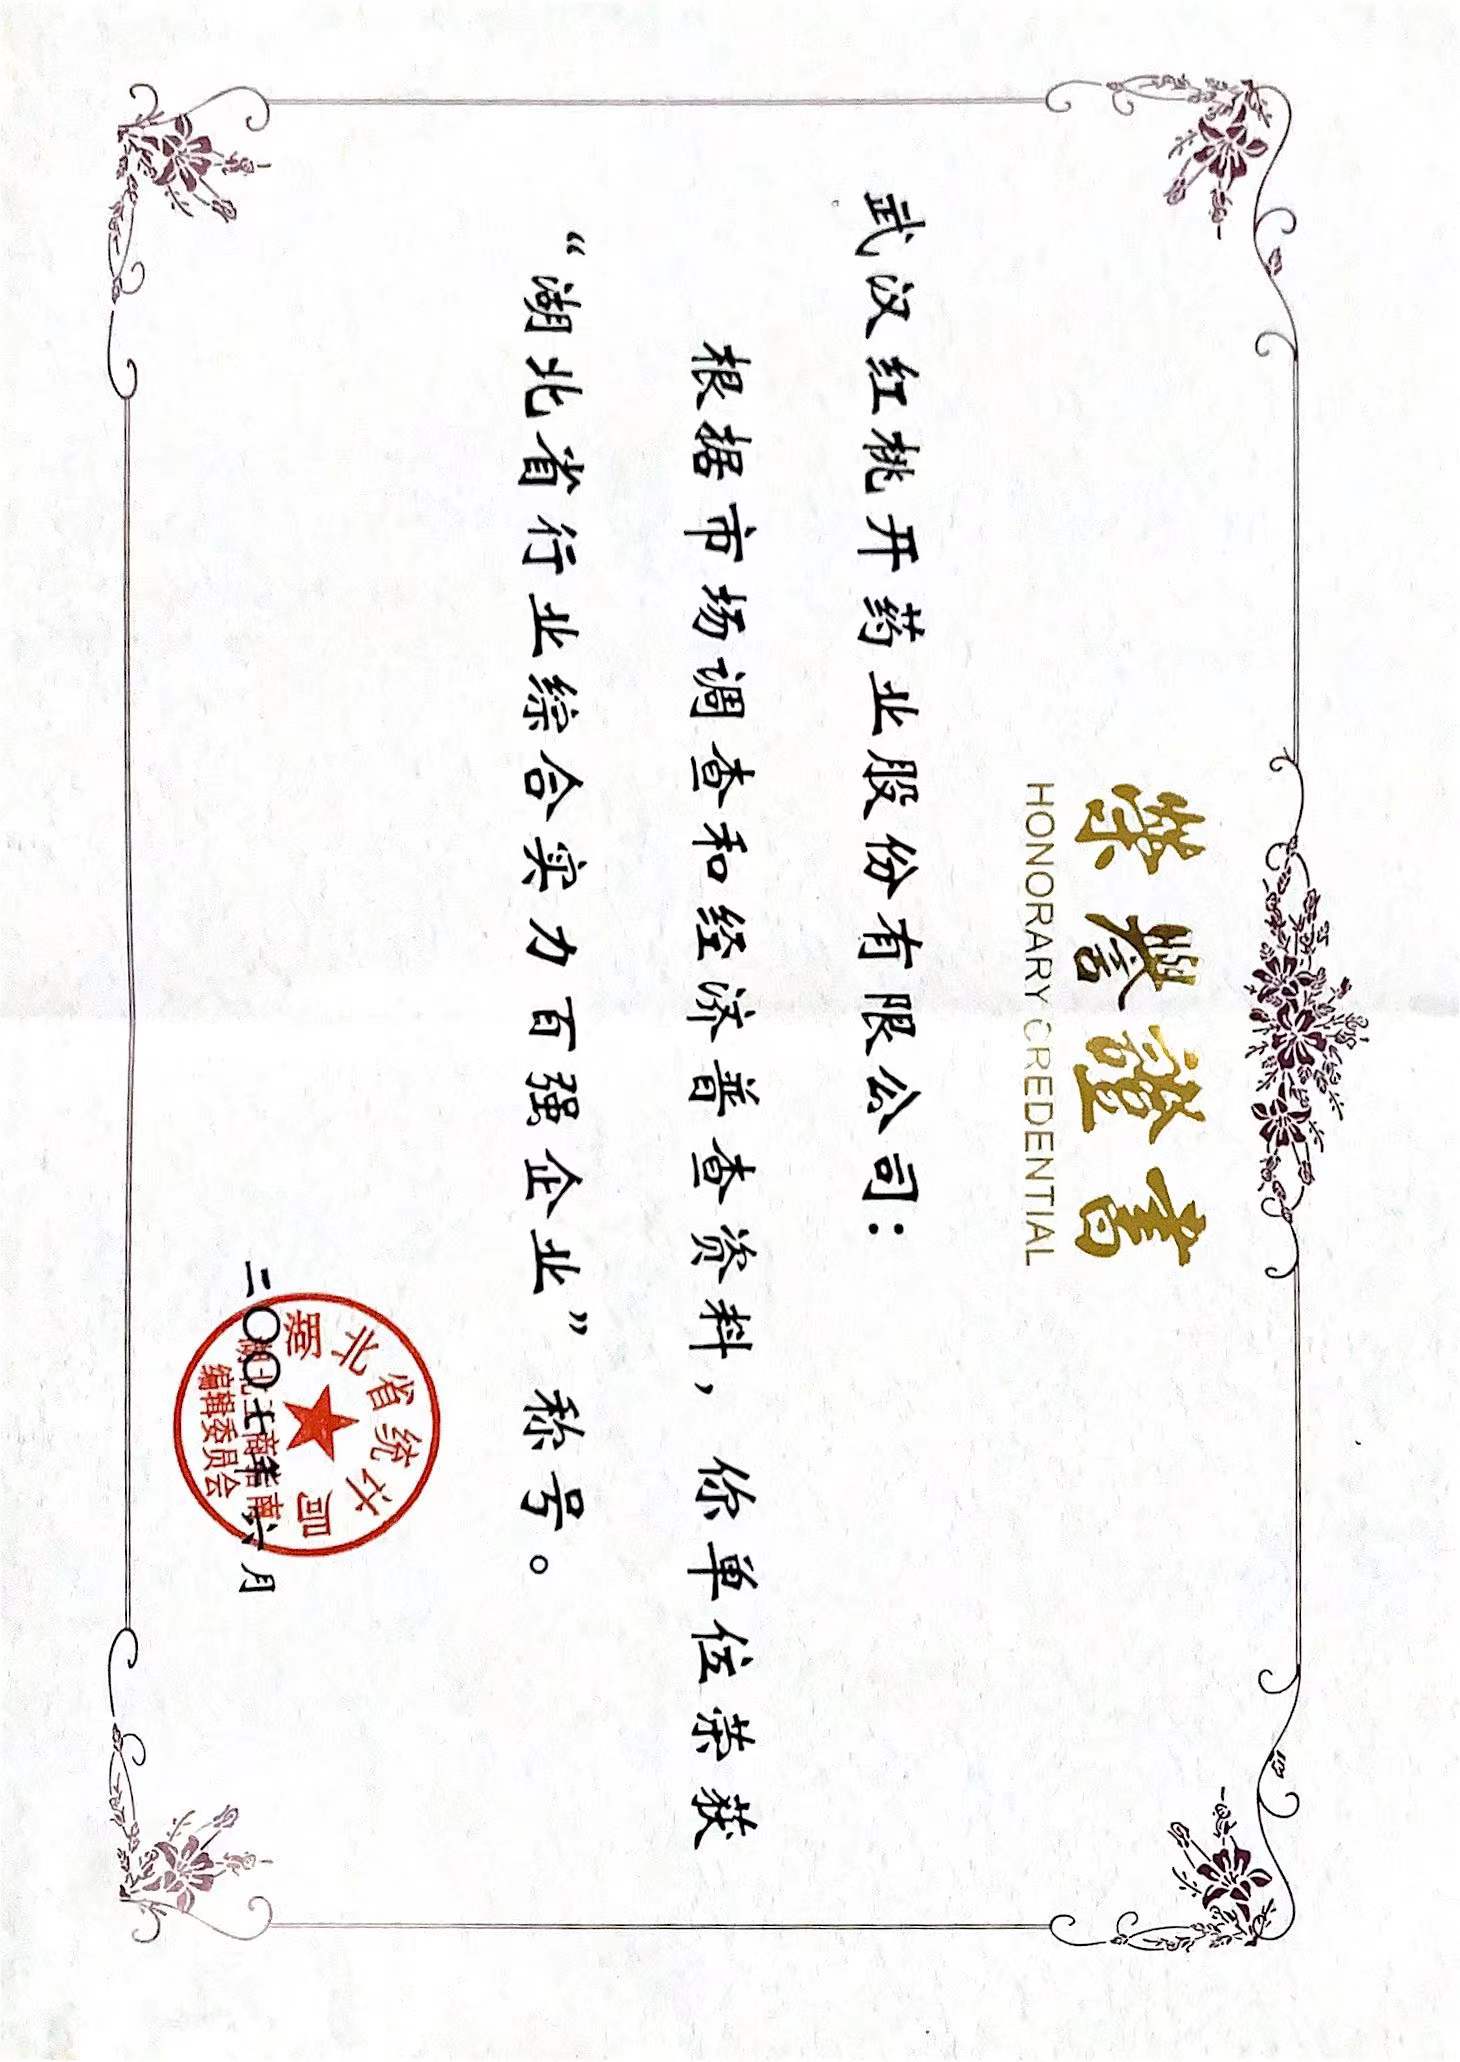 榮譽證書
HONORARY CREDENTIAL
武汉红桃开药业股份有限公司：
根据市场调查和经济普查资料，你单位荣获
“湖北省行业综合实力百强企业”称号。
湖北省统计局
湖北工商指南
编辑委员会
二〇〇七年六月